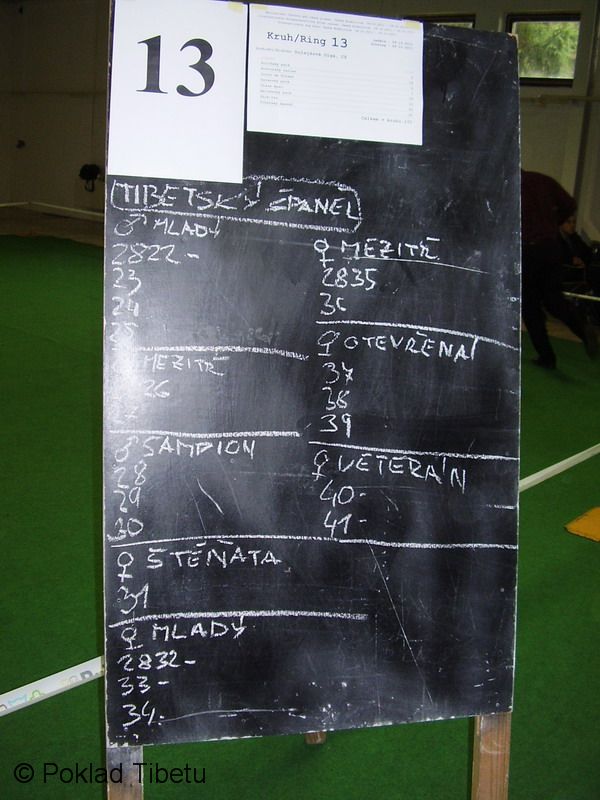 13
Kruh/Ring 13
TIBETSKÝ ŠPANĚL
♂ MLADÝ
2822-
23
24
25
MEZITŘ
26
♂ ŠAMPION
28
29
30
♀ ŠTĚŇATA
31
♀ MLADÝ
2832-
33-
34-
♀ MEZITŘ
2835
36
♀ OTEVŘENÁ
37
38
39
♀ VETERÁN
40-
41-
© Poklad Tibetu